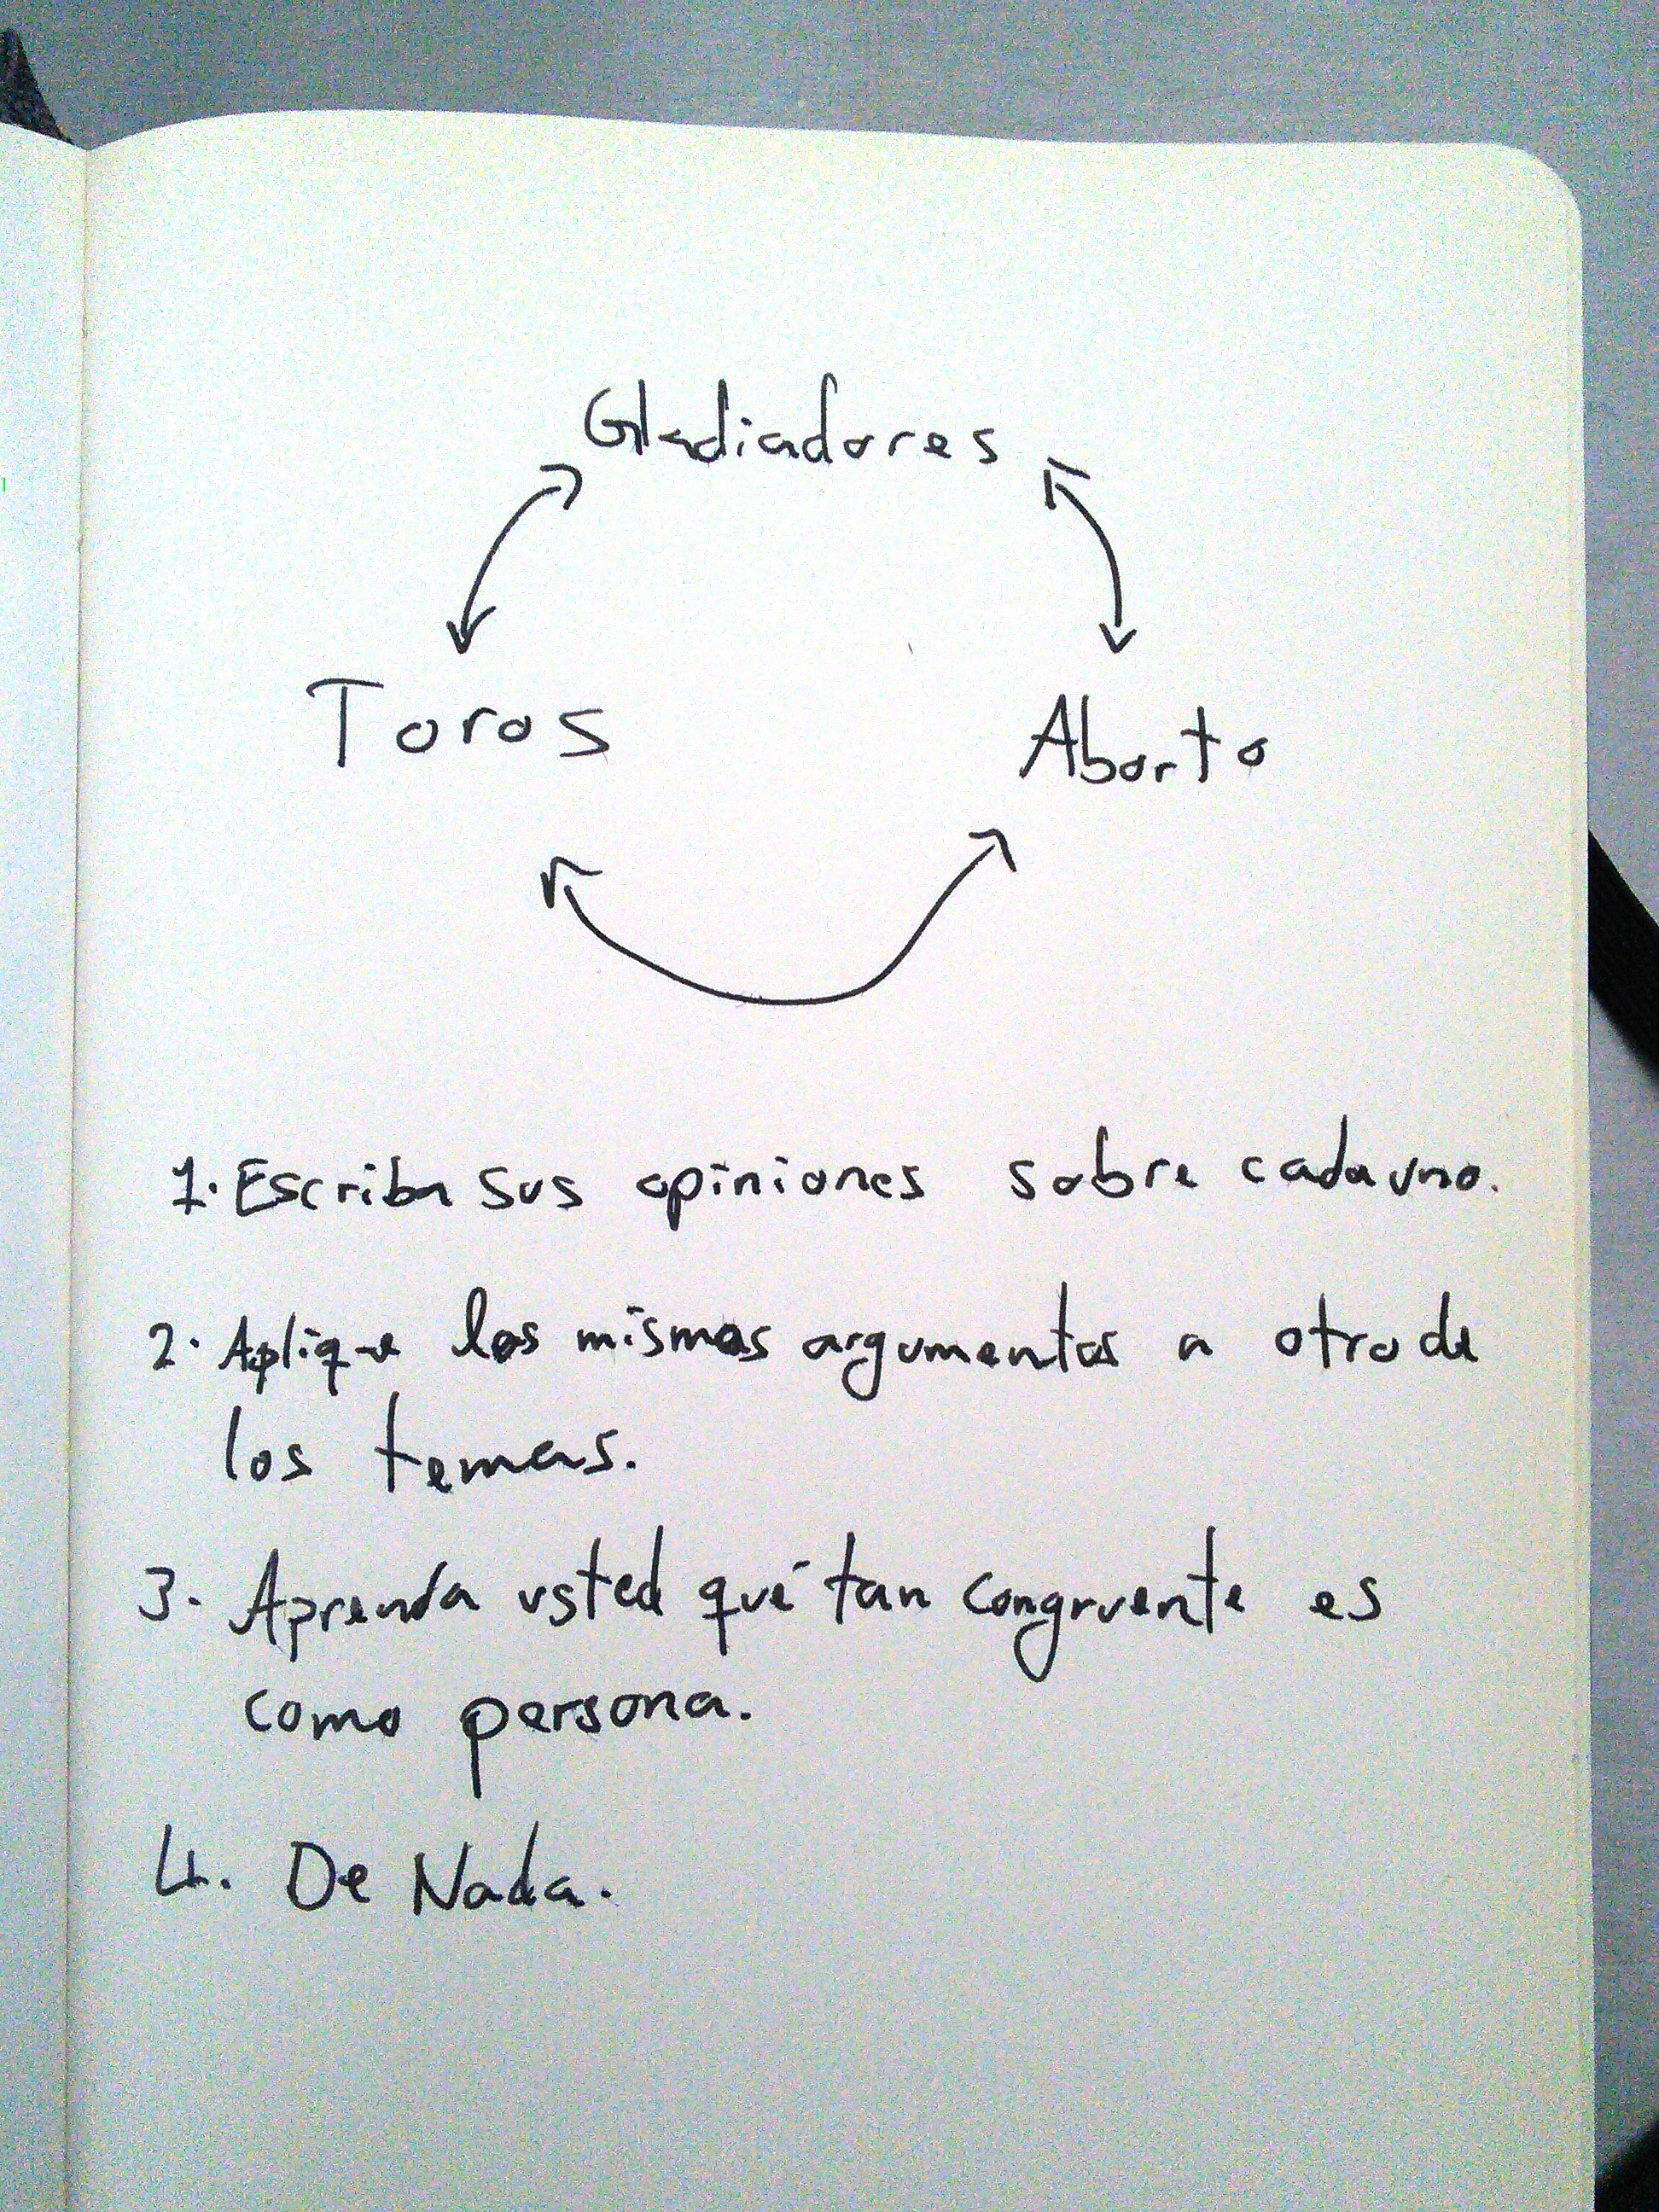 Gladiadores
Toros
Aborto
1. Escriba sus opiniones sobre cada uno.
2. Aplique los mismos argumentos a otro de
los temas.
3. Aprenda usted qué tan congruente es
como persona.
4. De Nada.